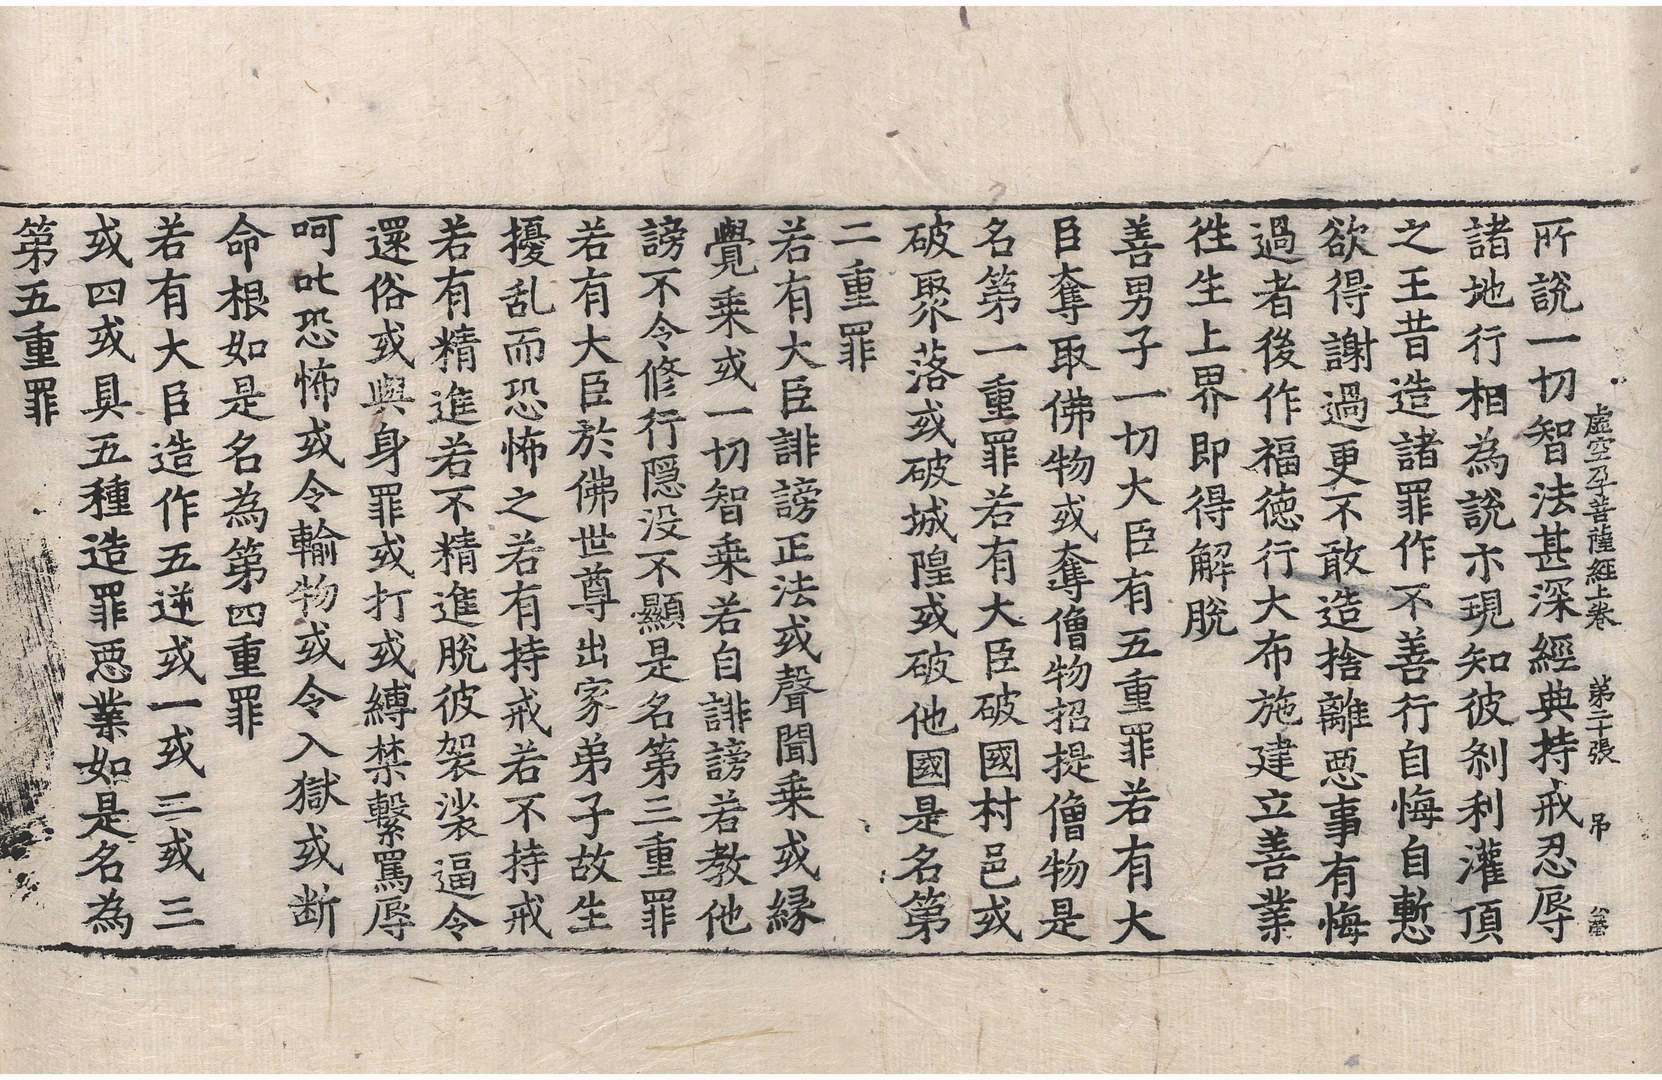 虛空孕菩薩經上卷 第二十張 吊
所說一切智法甚深經典持戒忍辱
諸地行相為說示現知彼剎利灌頂
之王昔造諸罪作不善行自悔自慙
欲得謝過更不敢造捨離惡事有悔
過者後作福德行大布施建立善業
徃生上界即得解脫
善男子一切大臣有五重罪若有大
臣奪取佛物或奪僧物招提僧物是
名第一重罪若有大臣破國村邑或
破聚落或破城隍或破他國是名第
二重罪
若有大臣誹謗正法或聲聞乗或縁
覺乗或一切智乗若自誹謗若教他
謗不令修行隱没不顯是名第三重罪
若有大臣於佛世尊出家弟子故生
擾乱而恐怖之若有持戒若不持戒
若有精進若不精進脫彼袈裟逼令
還俗或與身罪或打或縛禁繫罵辱
呵叱恐怖或令輸物或令入獄或断
命根如是名為第四重罪
若有大臣造作五逆或一或二或三
或四或具五種造罪惡業如是名為
第五重罪